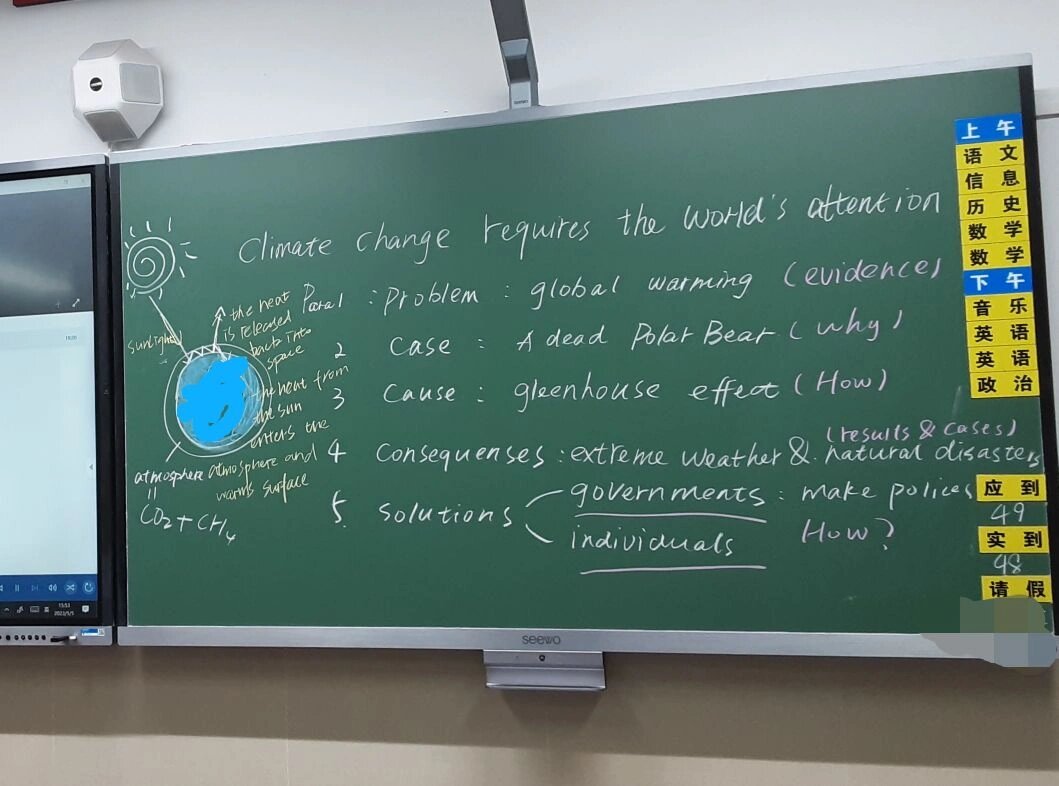 Climate change requires the world's attention
Para1 : problem : global warming (evidence)
2 case : A dead Polar Bear (why)
3 cause : gleenhouse effect (How)
(results & cases)
4 Consequenses : extreme weather & natural disasters
5 solutions
governments : make polices
individuals How?
sunlight
the heat
is released
back into
space
the heat from
the sun
enters the
atmosphere and
warms surface
atmosphere
CO₂ + CH₄
上午
语文
信息
历史
数学
数学
下午
音乐
英语
英语
政治
应到
49
实到
48
请假
seewo
seewo
15:53
2022/5/5